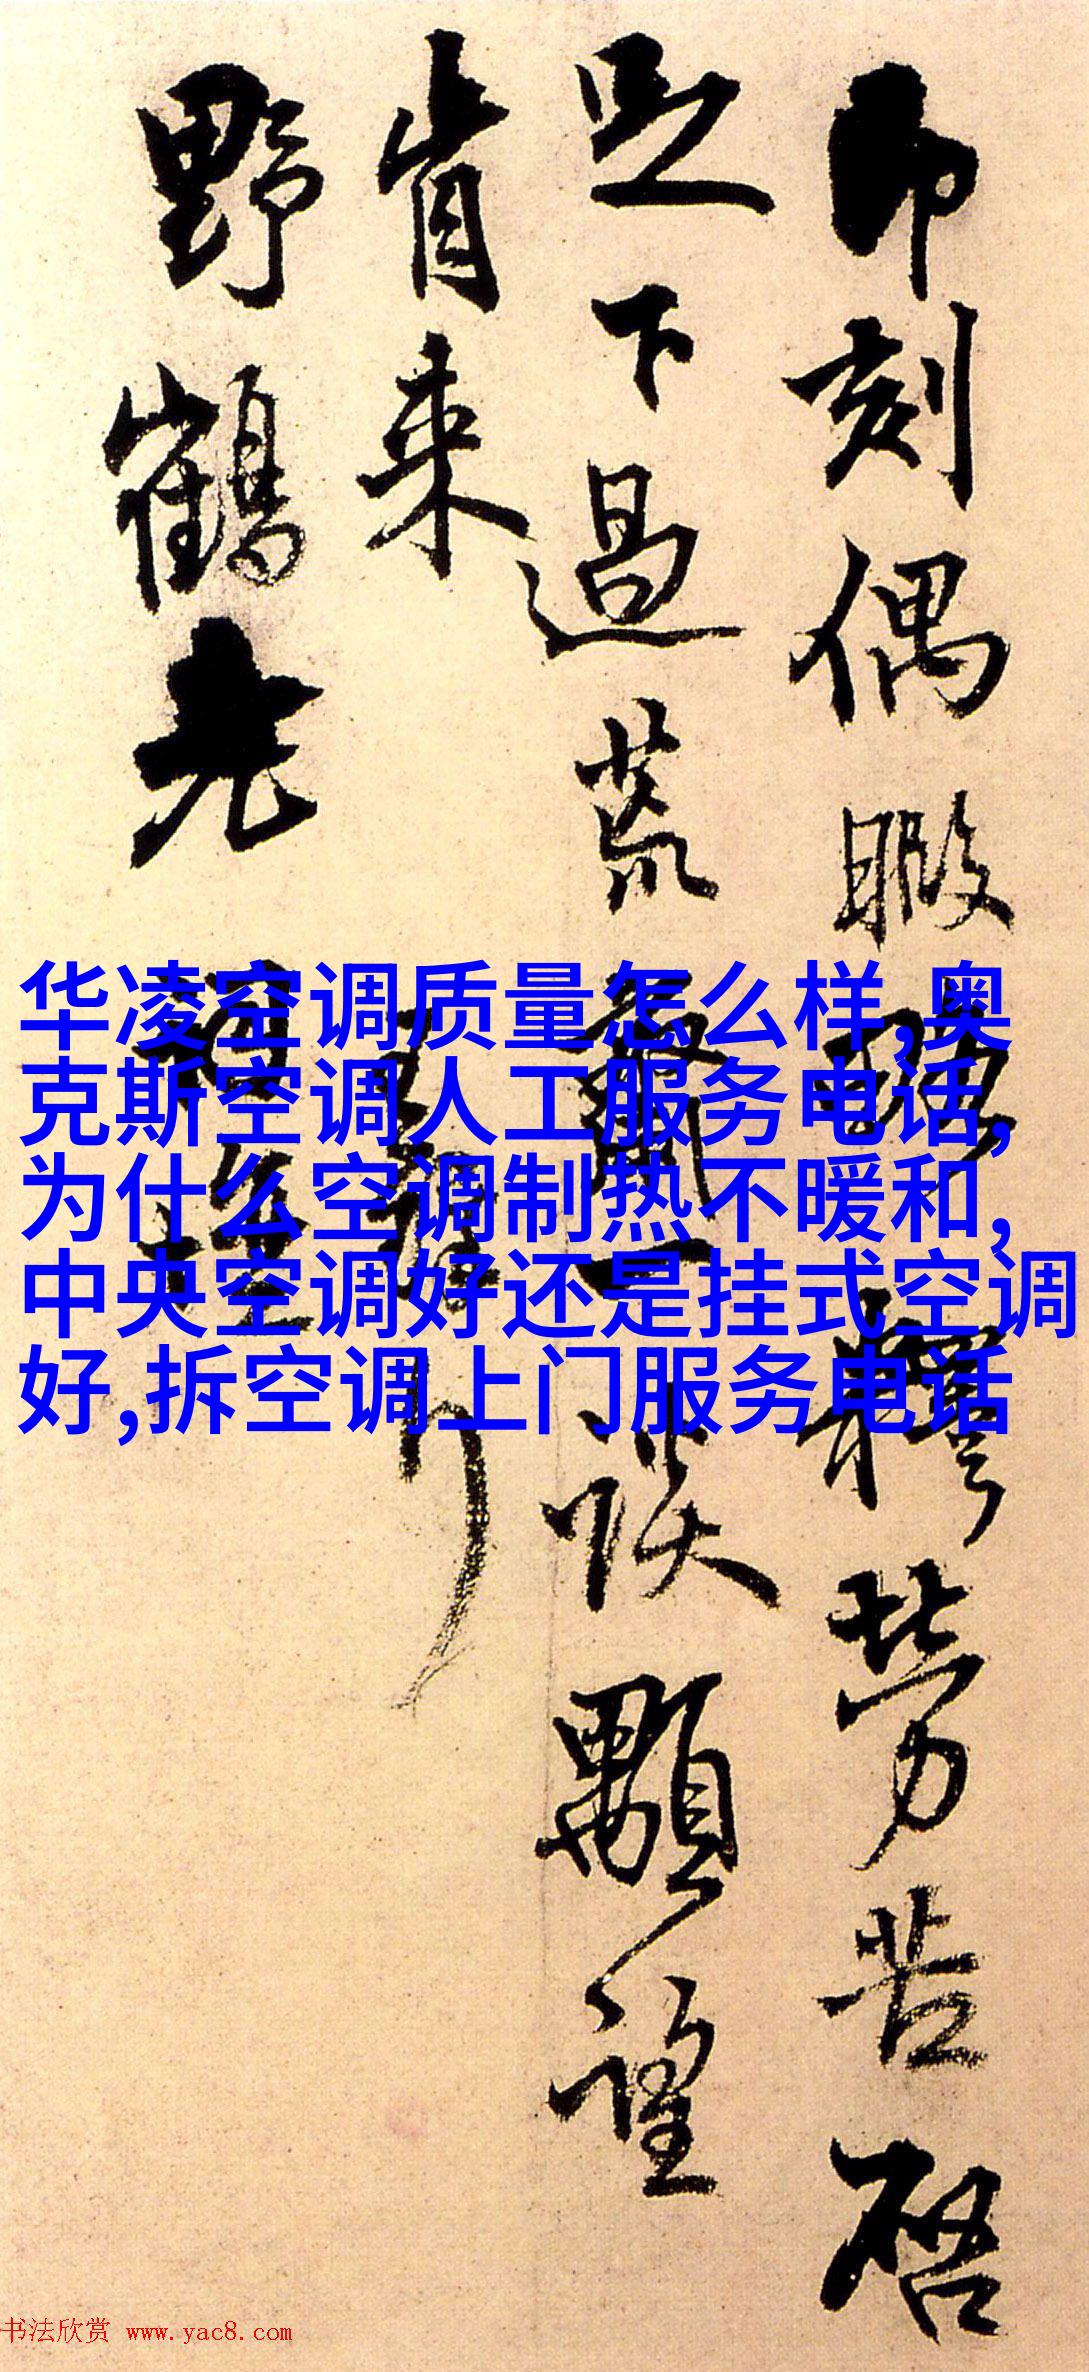 即刻偶暇
體勞苦啓
足下過荒
一談顒望
肯来
野鶴老
华凌空调质量怎么样,奥
克斯空调人工服务电话,
为什么空调制热不暖和,
中央空调好还是挂式空调
好,拆空调上门服务电话
书法欣赏 www.yac8.com